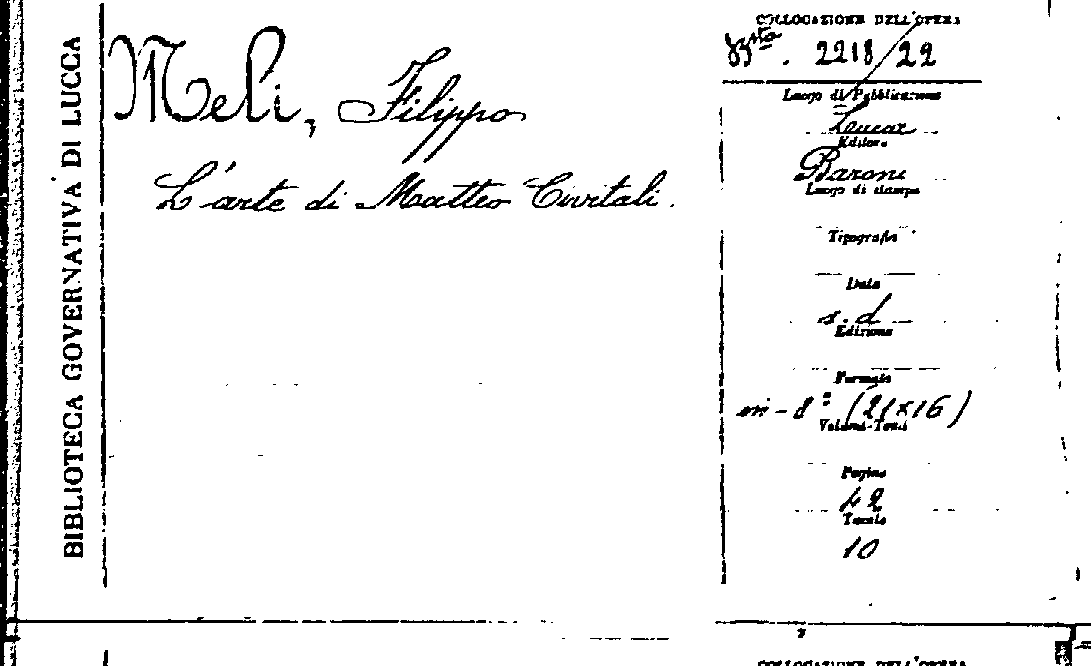 BIBLIOTECA GOVERNATIVA DI LUCCA
Meli, Filippo
L'arte di Matteo Civitali.
COLLOCAZIONE DELL'OPERA
Bsta. 2218/22
Luogo di Pubblicazione
Lucca
Editore
Baroni
Luogo di stampa
Tipografia
Data
s.d
Edizione
Formato
in-8° (21x16)
Volumi-Tomi
Pagine
42
Tavole
10
COLLOCAZIONE DELL'OPERA